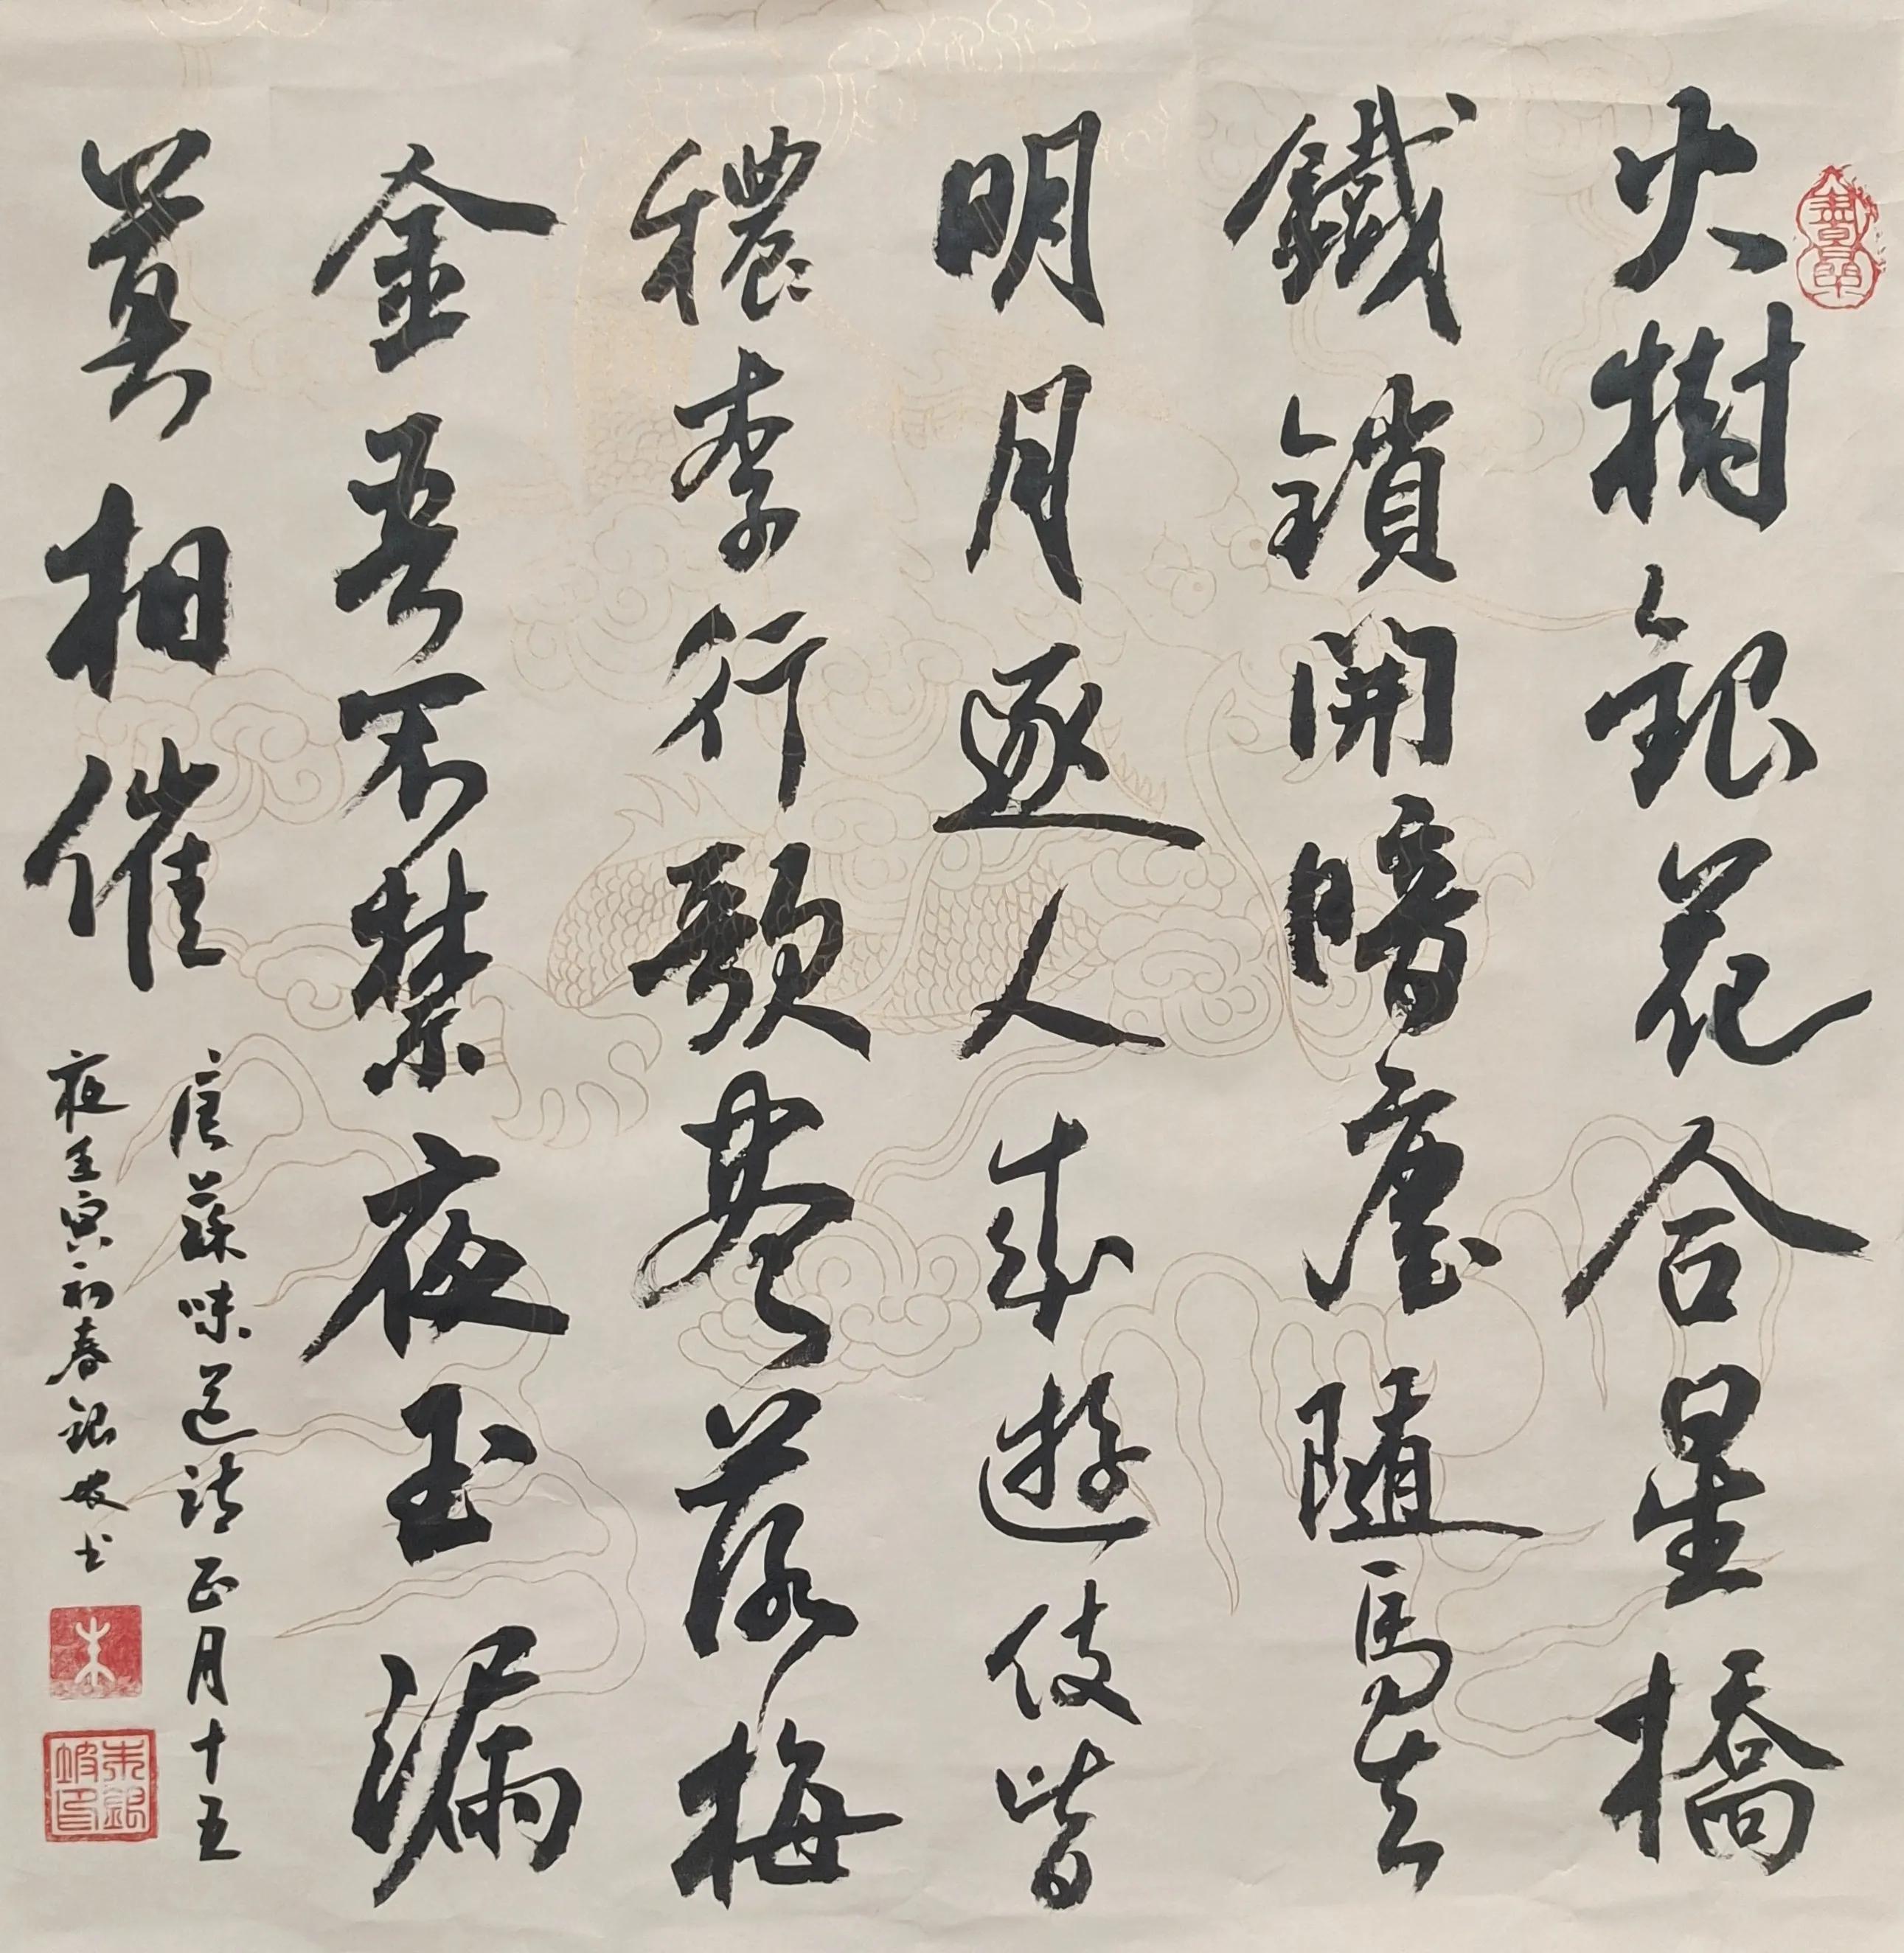 火樹銀花合星橋
鐵鎖開暗塵隨馬去
明月逐人來遊伎皆
穠李行歌盡落梅
金吾不禁夜玉漏
莫相催
唐蘇味道詩正月十五
夜壬寅初春銀坡书
朱
朱銀坡印